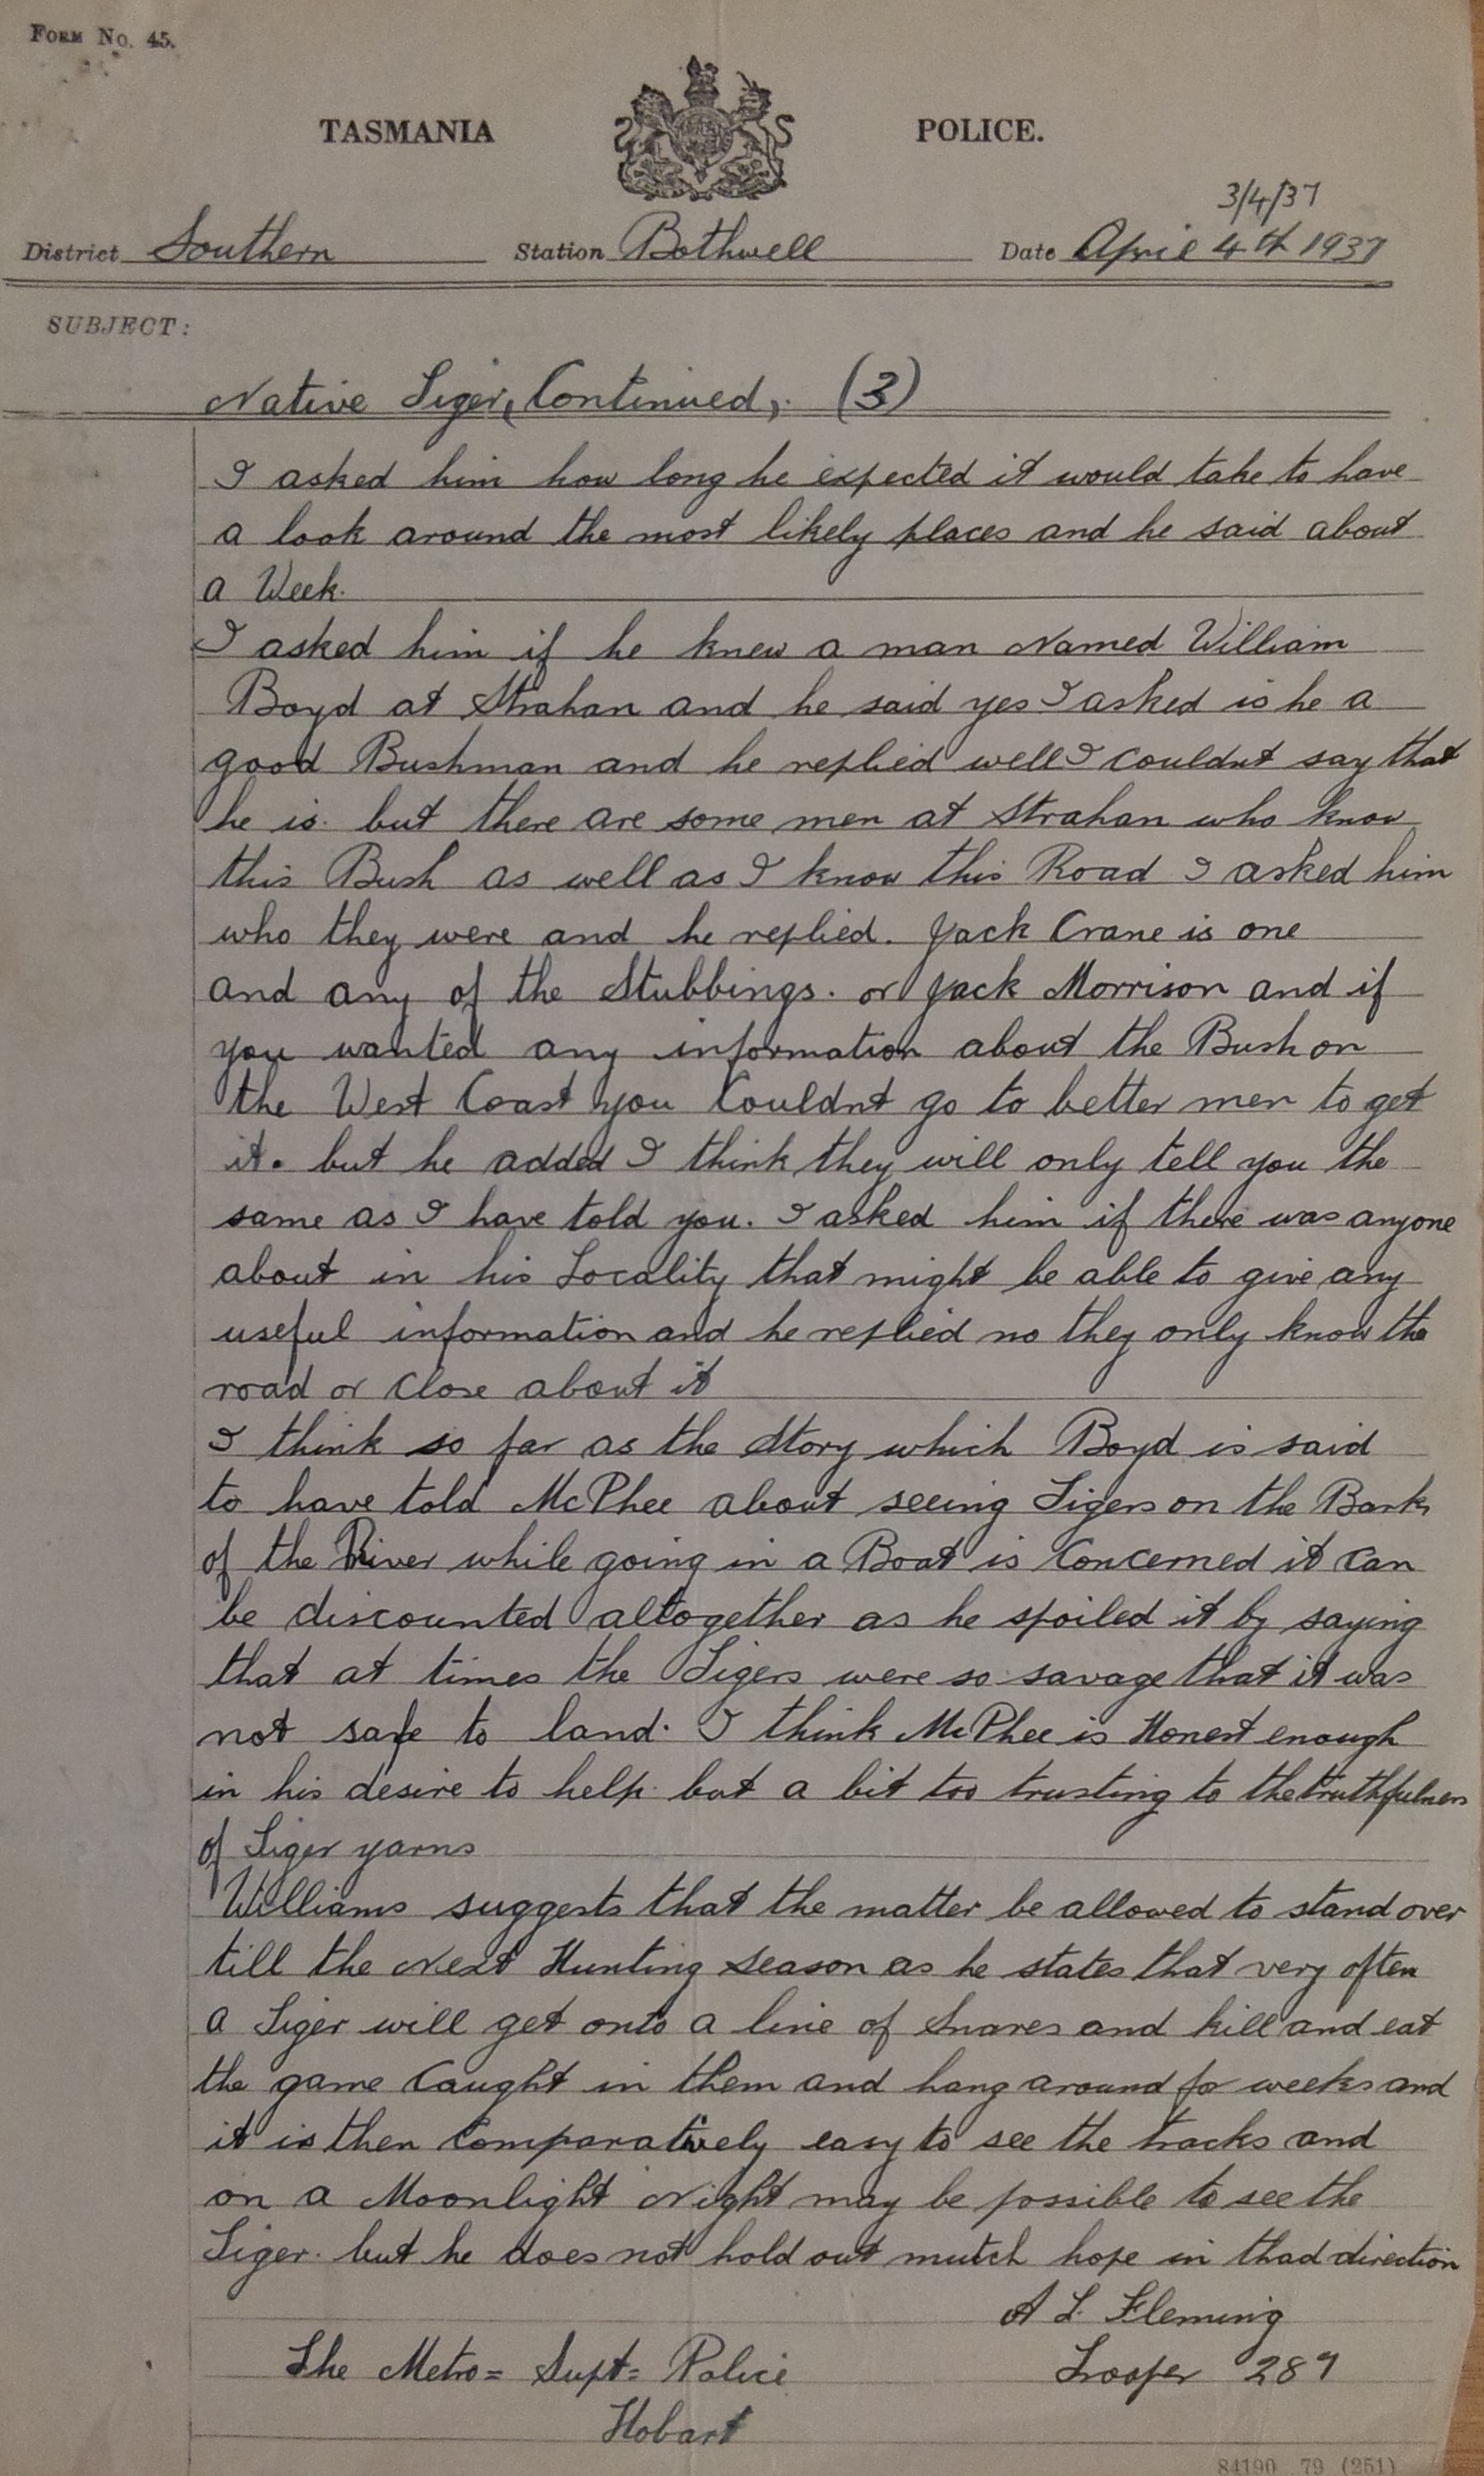 FORM No. 45.
TASMANIA POLICE.
3/4/37
District Southern Station Bothwell Date April 4th 1937
SUBJECT:
Native Tiger, Continued, (3)
I asked him how long he expected it would take to have
a look around the most likely places and he said about
a Week.
I asked him if he knew a man Named William
Boyd at Strahan and he said yes I asked is he a
good Bushman and he replied well I couldnt say that
he is. but there are some men at Strahan who know
this Bush as well as I know this Road I asked him
who they were and he replied. Jack Crane is one
and any of the Stubbings. or Jack Morrison and if
you wanted any information about the Bush on
the West Coast you Couldnt go to better men to get
it. but he added I think they will only tell you the
same as I have told you. I asked him if there was anyone
about in his Locality that might be able to give any
useful information and he replied no they only know the
road or Close about it
I think so far as the Story which Boyd is said
to have told McPhee about seeing Tigers on the Bank
of the River while going in a Boat is Concerned it Can
be discounted altogether as he spoiled it by saying
that at times the Tigers were so savage that it was
not safe to land. I think McPhee is Honest enough
in his desire to help. but a bit too trusting to the truthfulness
of Tiger yarns
Williams suggests that the matter be allowed to stand over
till the Next Hunting Season as he states that very often
a Tiger will get onto a line of Snares and kill and eat
the game Caught in them and hang around for weeks and
it is then Comparatively easy to see the tracks and
on a Moonlight Night may be possible to see the
Tiger. but he does not hold out mutch hope in thad direction
A L. Fleming
The Metro= Supt= Police Trooper 289
Hobart
84190 79 (251)